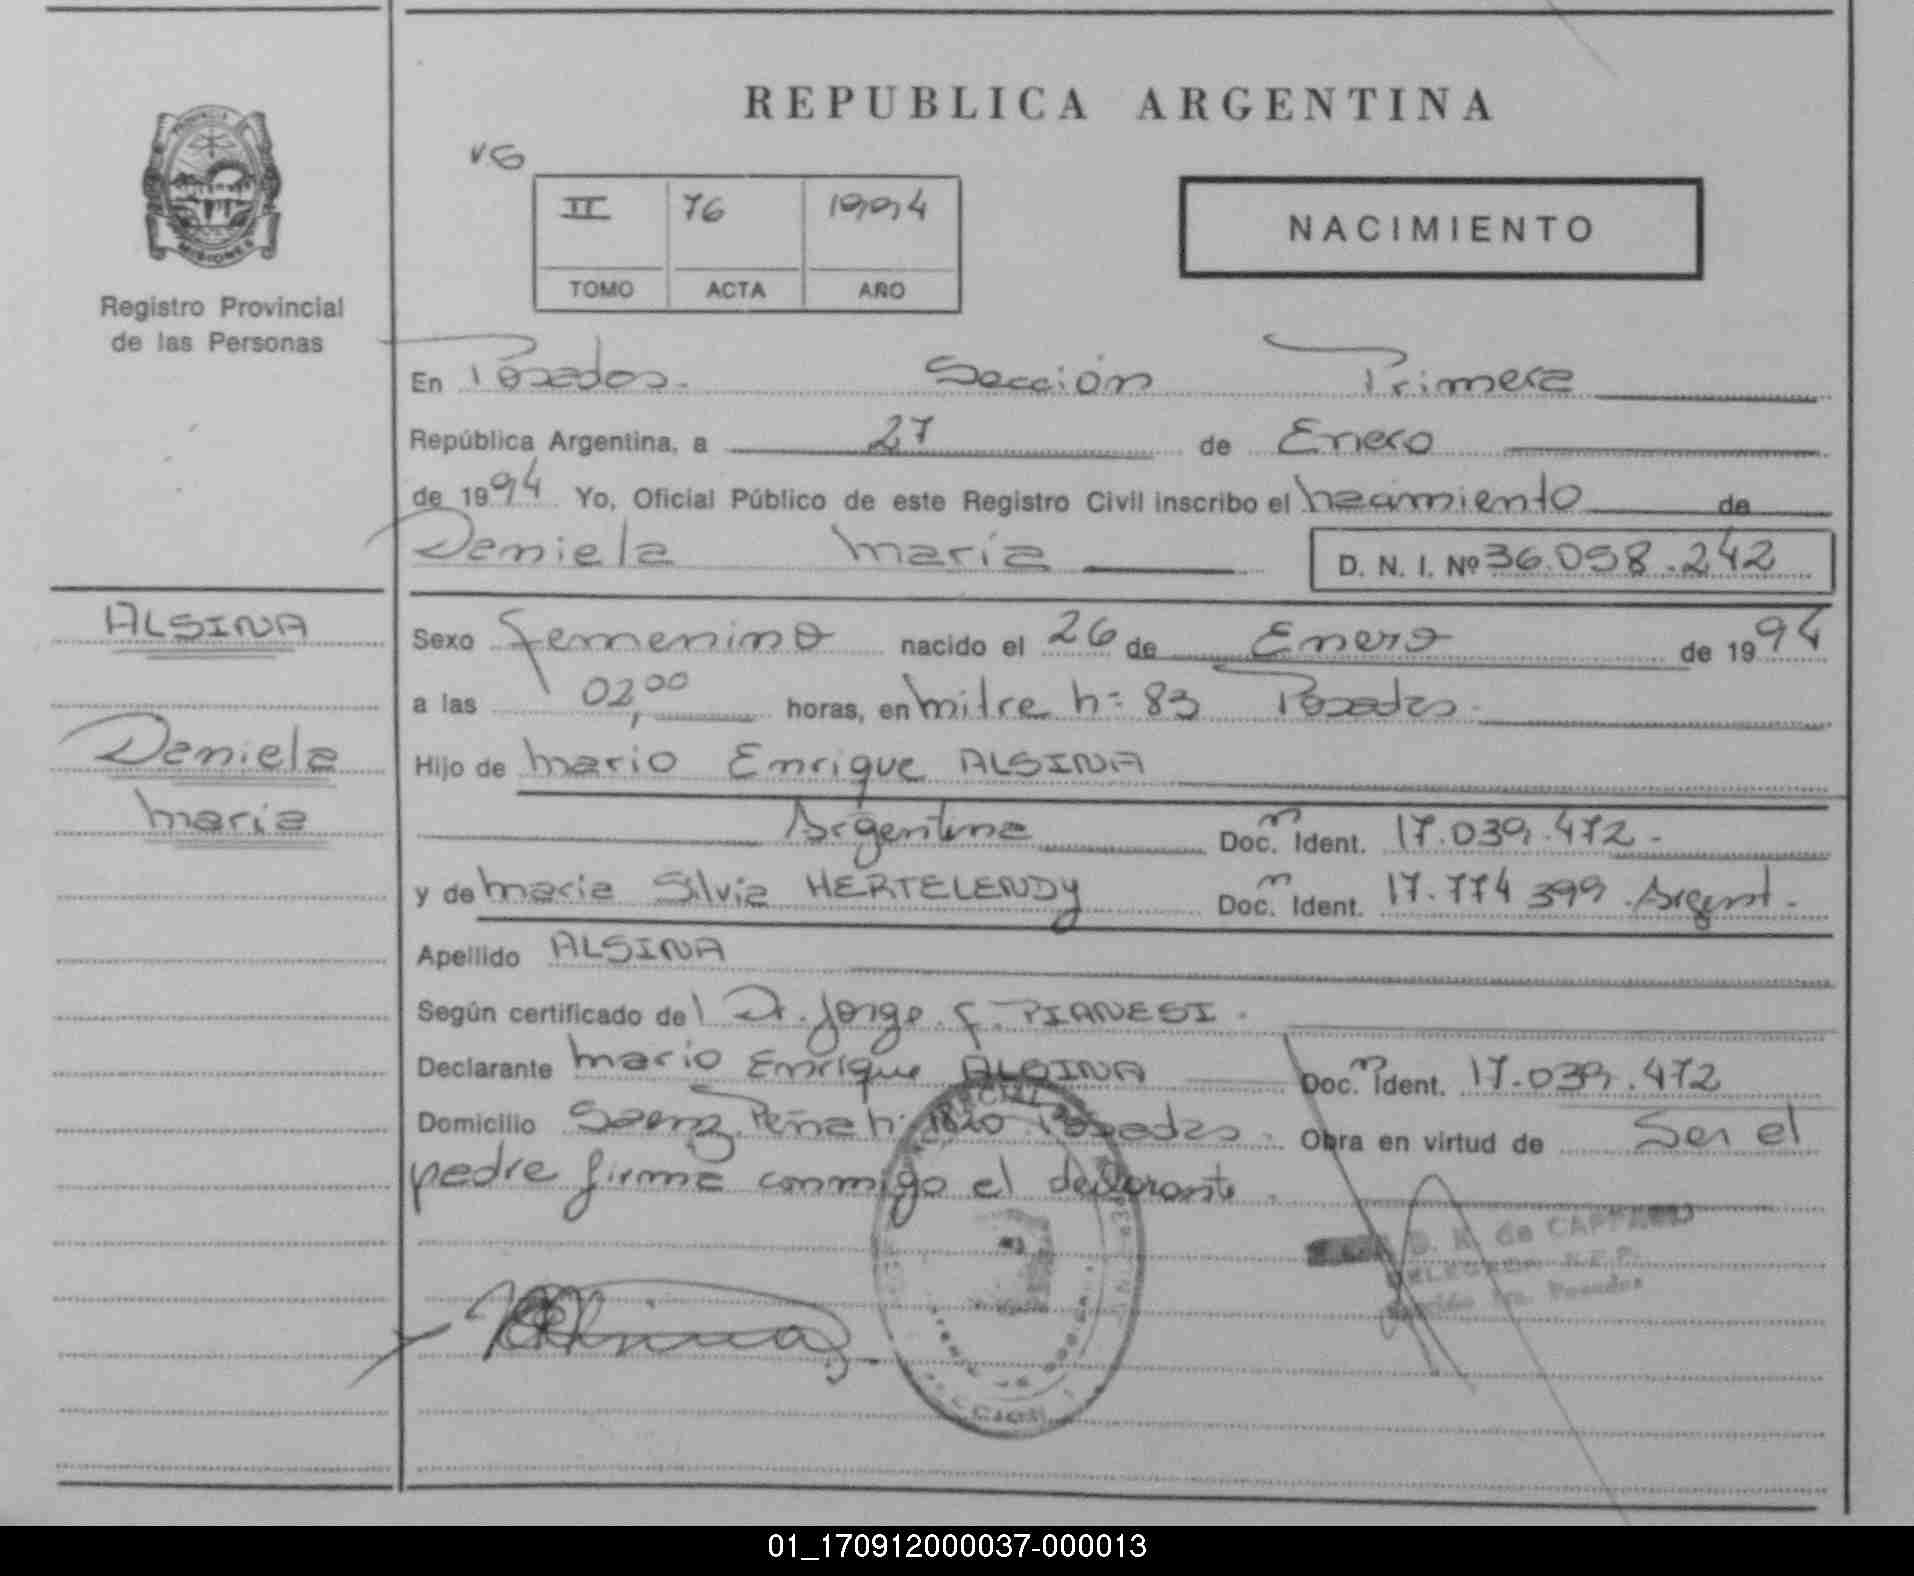 REPUBLICA ARGENTINA
PROVINCIA
MISIONES
Registro Provincial
de las Personas
VG
II 76 1994
TOMO ACTA AÑO
NACIMIENTO
En Posadas. Sección Primera
República Argentina, a 27 de Enero
de 1994 Yo, Oficial Público de este Registro Civil inscribo el nacimiento de
Daniela María D. N. I. Nº 36.058.242
ALSINA
Daniela
María
Sexo femenino nacido el 26 de Enero de 1994
a las 02,00 horas, en Mitre n= 83 Posadas.
Hijo de Mario Enrique ALSINA
Argentina Doc. m Ident. 17.039.472.-
y de Maria Silvia HERTELENDY Doc. m Ident. 17.774 399 Argent.
Apellido ALSINA
Según certificado del Dr. Jorge F. PIANESI.
Declarante Mario Enrique ALSINA Doc. m Ident. 17.039.472
Domicilio Saenz Peña n: 1820 Posadas. Obra en virtud de Ser el
padre firma conmigo el declarante.
de CAFFARO
DELEGADA R.P.P.
Sección 1ra. Posadas
01_170912000037-000013